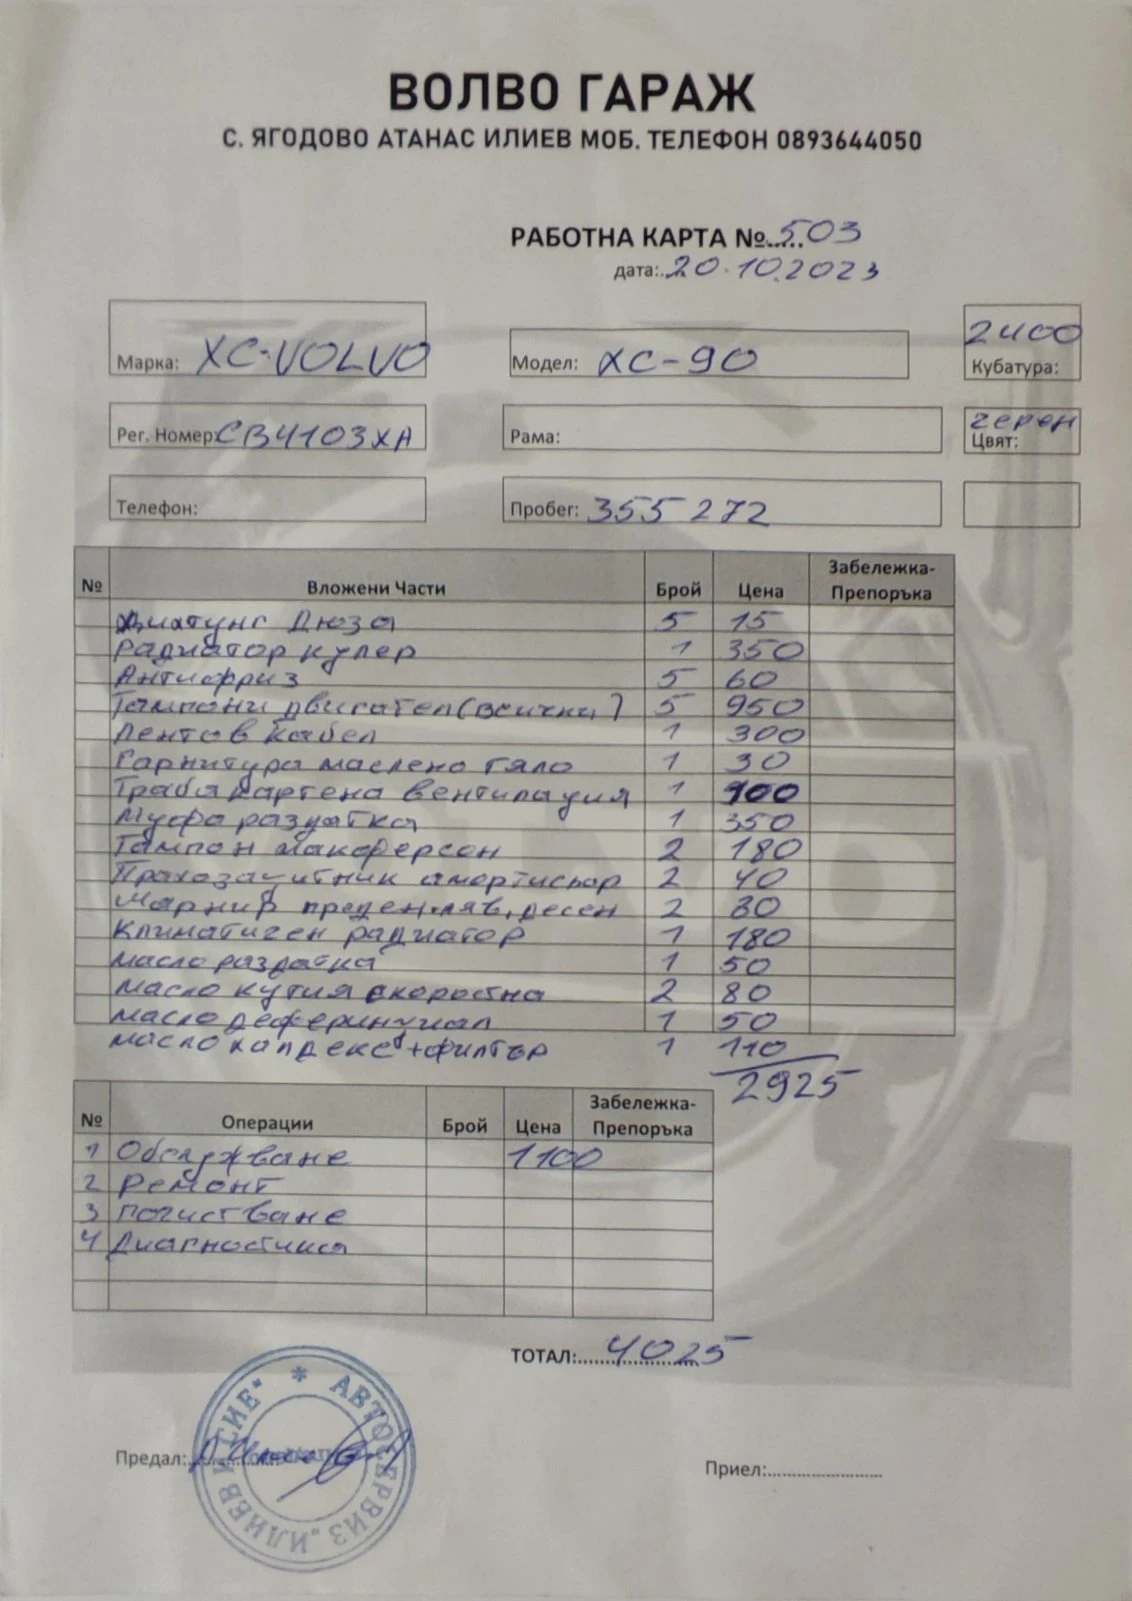 ВОЛВО ГАРАЖ
С. ЯГОДОВО АТАНАС ИЛИЕВ МОБ. ТЕЛЕФОН 0893644050
РАБОТНА КАРТА №..... 503
дата:.... 20.10.2023
Марка: XC-VOLVO Модел: XC-90 2400 Кубатура:
Рег. Номер: СВ4103ХА Рама: черен Цвят:
Телефон: Пробег: 355 272
№ Вложени Части Брой Цена Забележка-Препоръка
Дихтунг Дюза 5 15
Радиатор кулер 1 350
Антифриз 5 60
Тампони двигател (всички) 5 950
Лентов Кабел 1 300
Гарнитура маслено тяло 1 30
Траба картена вентилация 1 100
Муфа раздатка 1 350
Тампон макферсон 2 180
Прахозащитник амортисьор 2 40
Марнир преден ляв, десен 2 80
Климатичен радиатор 1 180
масло раздатка 1 50
масло кутия скоростна 2 80
масло деференциал 1 50
масло халдекс + филтър 1 110
2925
№ Операции Брой Цена Забележка-Препоръка
1 Обслужване 1100
2 Ремонт
3 Почистване
4 Диагностика
ТОТАЛ: 4025
Предал:
Приел:
АВТОСЕРВИЗ "ИЛИЕВ И СИЕ" *